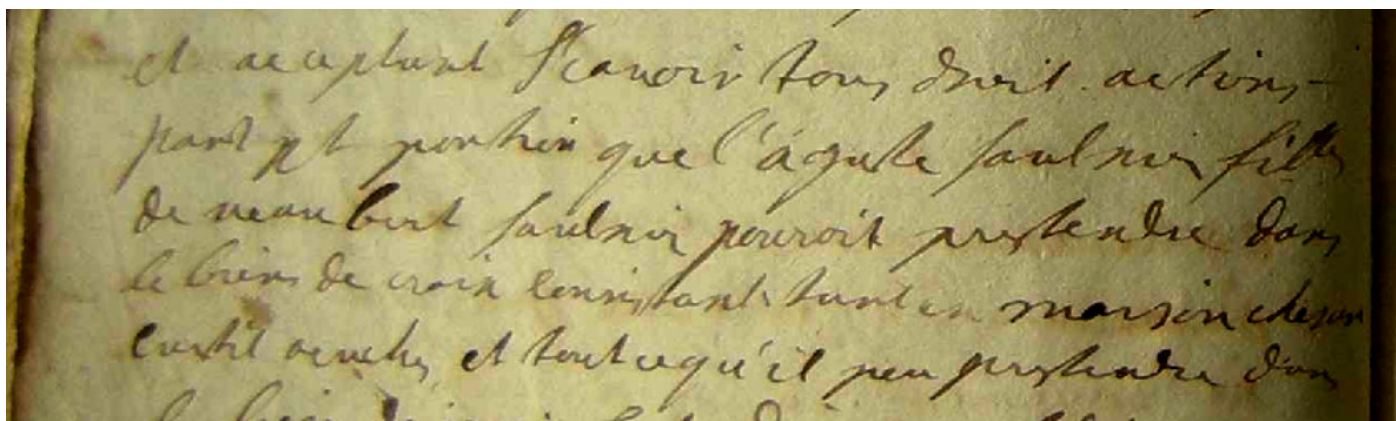 et acceptant Scavoir tous droit actions
part et portion que l'agute saulnir fille
de meaubert saulnir pouroit prestendre dans
le biens de croix consistant tant en maison
et tout cequ'il peu prestendre dans